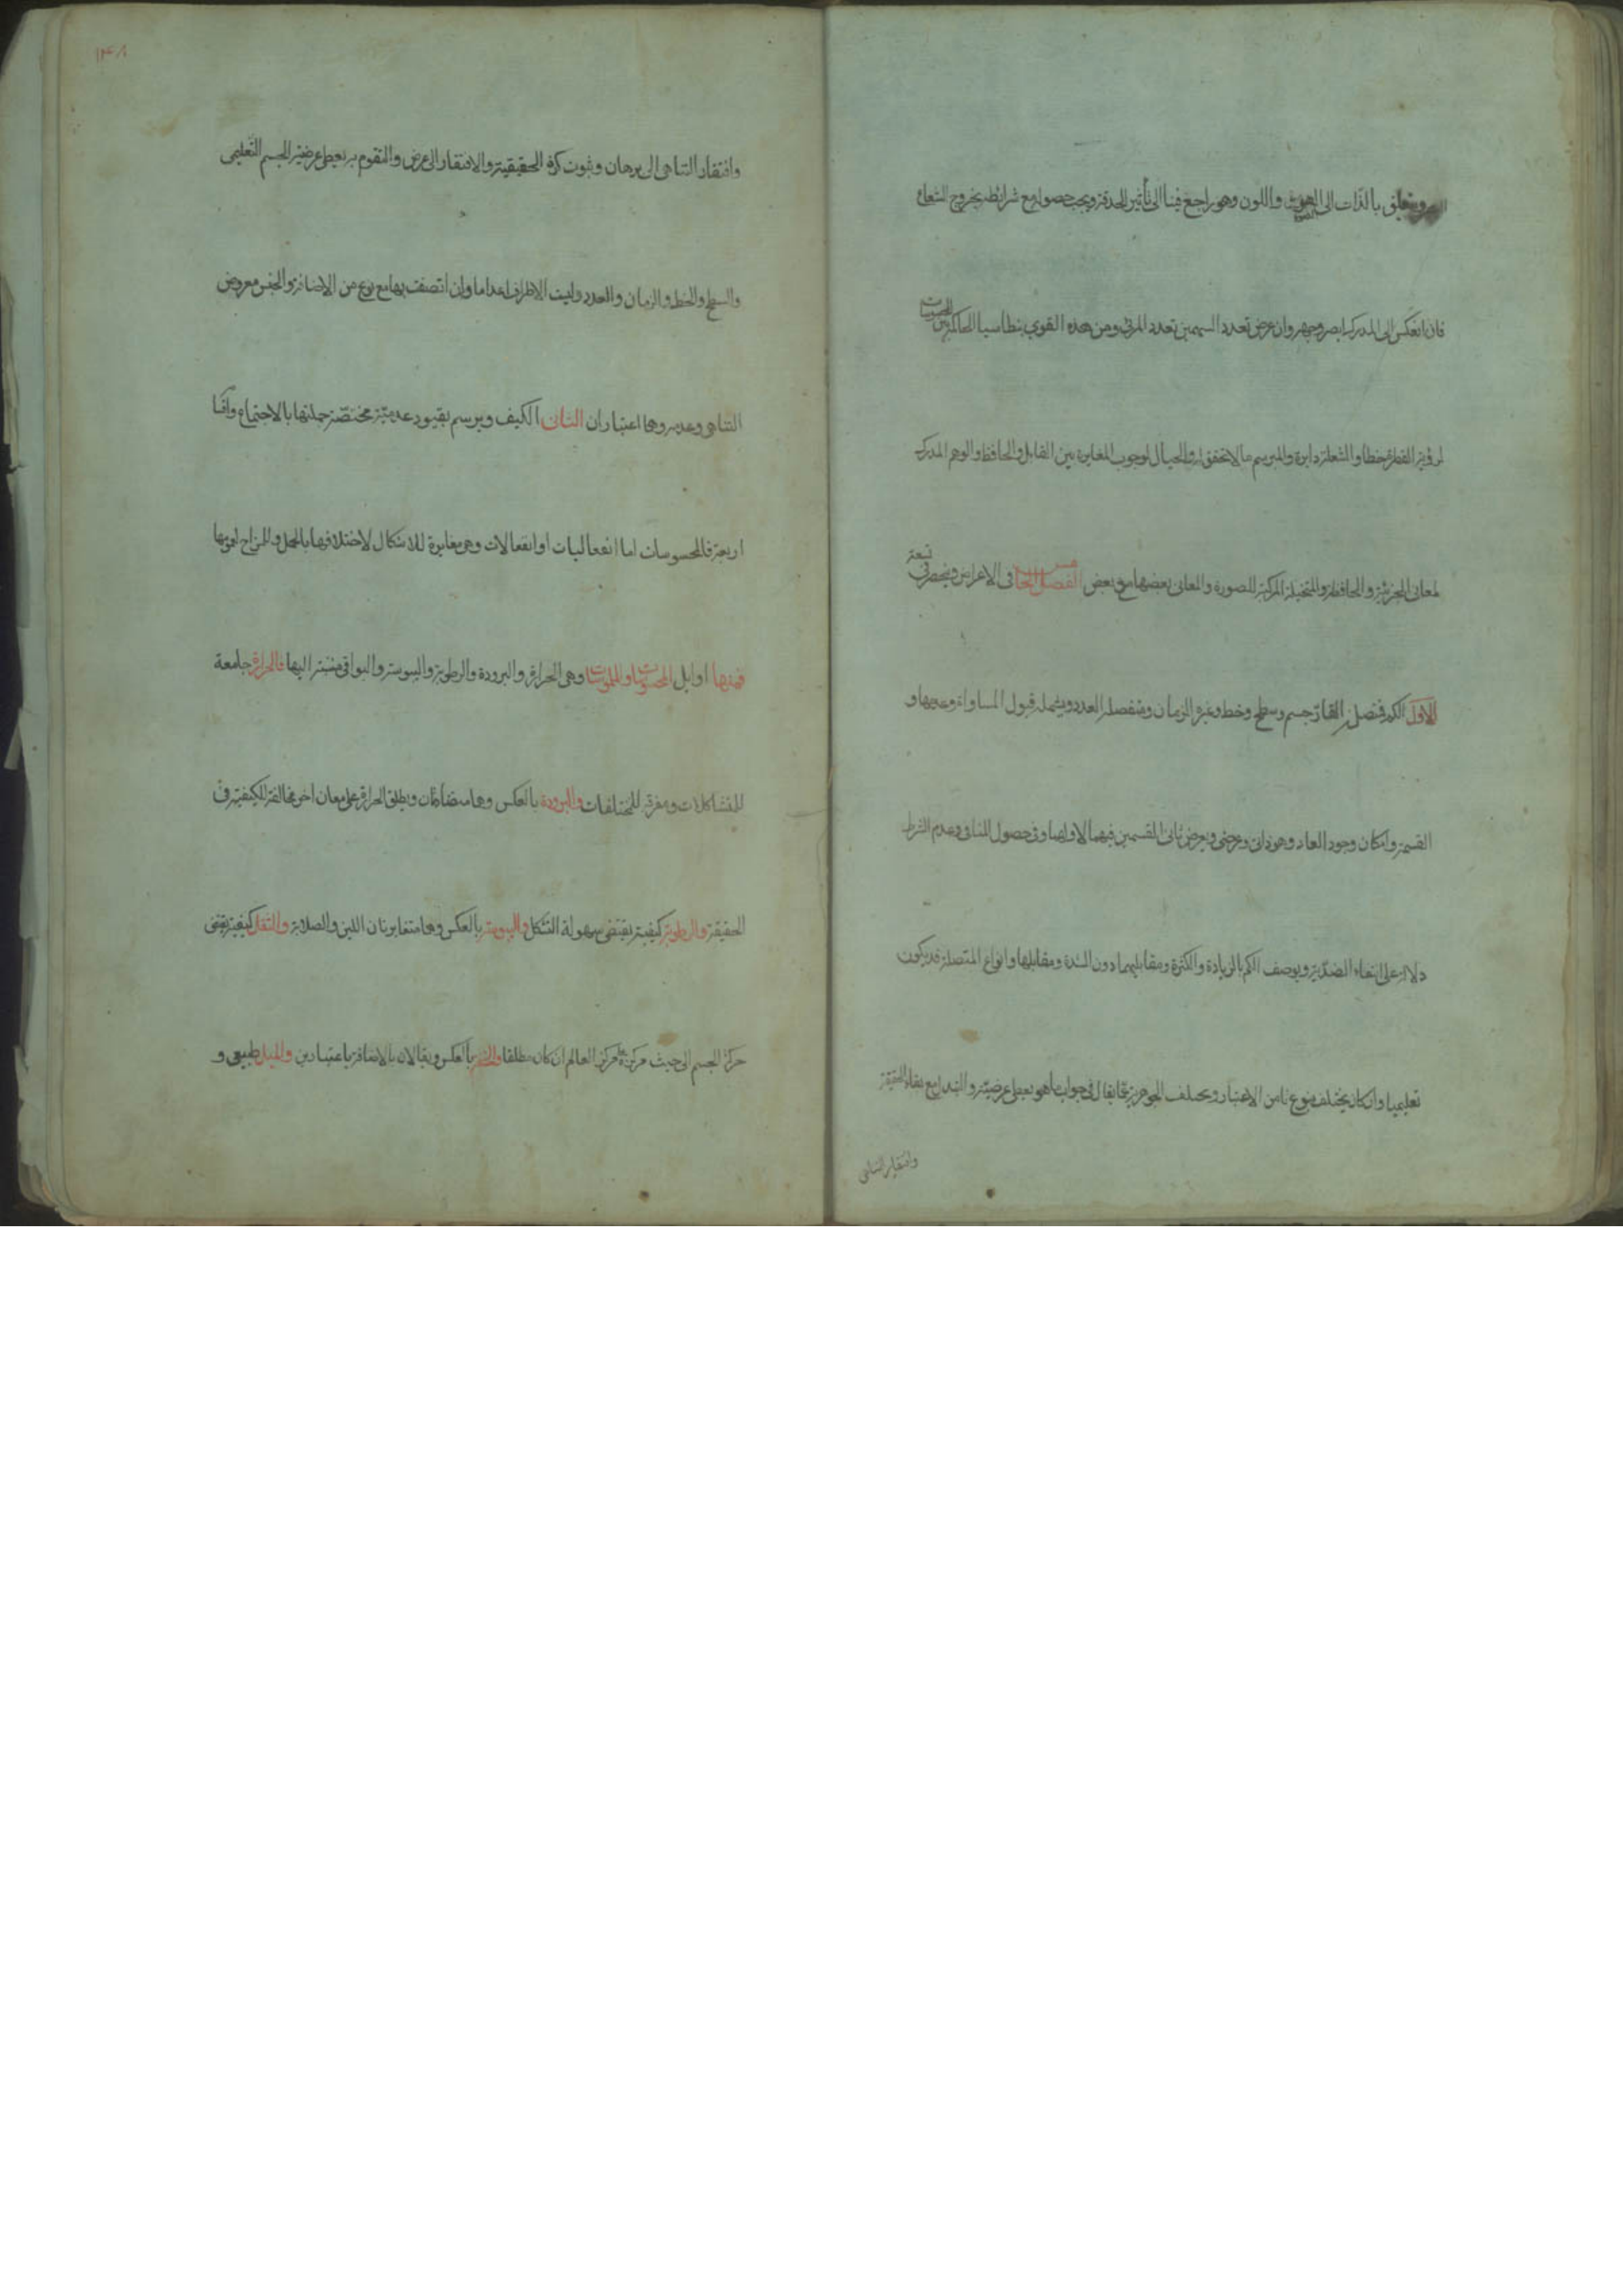 ويتعلق بالذات الى الضوء واللون وهو راجع فينا الى تأثير الحدقة ويجب حصوله مع شرائطه بخروج الشعاع
فان انعكس الى المدرك ابصر وجهه وان عرض تعدد السهمين تعدد المرئي ومن هذه القوى بنطاسيا الحاكمة بين المحسوسات
لرؤية القطرة خطا والشعلة دايرة والمبرسم ما لا تحقق له والخيال لوجوب المغايرة بين القابل والحافظ والوهم المدرك
لمعاني الجزئية والحافظة والمتخيلة المركبة للصورة والمعاني بعضها مع بعض الفصل الخامس في الاعراض وينحصر في تسعة
الاول الكم فمتصل القار جسم وسطح وخط وغيره الزمان ومنفصله العدد ويشملها قبول المساواة وعدمها و
القسمة وامكان وجود العاد وهو ذاتي وعرضي ويعرض ثاني القسمين فيهما لاولهما وفي حصول المنافي وعدم الشرط
دلالة على انتفاء الضدية ويوصف الكم بالزيادة والكثرة ومقابليهما دون الشدة ومقابلها وانواع المتصلة قد يكون
تعليميا وان كان يختلف بنوع ما من الاعتبار وتخلف الجوهرية عما يقال في جواب ما هو يعطي عرضيته والتبدل مع بقاء الحقيقة
وافتقار التناهي
١٤٨
وافتقار التناهي الى برهان وثبوت كرة الحقيقية والافتقار الى عرض والتقوم به يعطي عرضية الجسم التعليمي
والسطح والخط والزمان والعدد وليست الاطراف اعداما وان اتصفت بها مع نوع من الاضافة والجنس معروض
التناهي وعدمه وهما اعتباران الثاني الكيف ويرسم بقيود عدمية مختصة جملتها بالاجتماع واقسا
اربعة فالمحسوسات اما انفعاليات او انفعالات وهي مغايرة للاشكال لاختلافها بالحمل والمزاج لعمومها
فمنها اوايل المحسوسات والملموسات وهي الحرارة والبرودة والرطوبة واليبوسة والبواقي منتسبة اليها فالحرارة جامعة
للمتشاكلات ومفرقة للمختلفات والبرودة بالعكس وهما متضادتان ويطلق الحرارة على معان اخر مخالفة للكيفية في
الحقيقة والرطوبة كيفية تقتضي سهولة التشكل واليبوسة بالعكس وهما متغايرتان اللين والصلابة والثقل كيفية تقتضي
حركة الجسم الى حيث مركزه مركز العالم ان كان مطلقا والخفة بالعكس ويقالان بالاضافة باعتبارين والميل طبيعي و